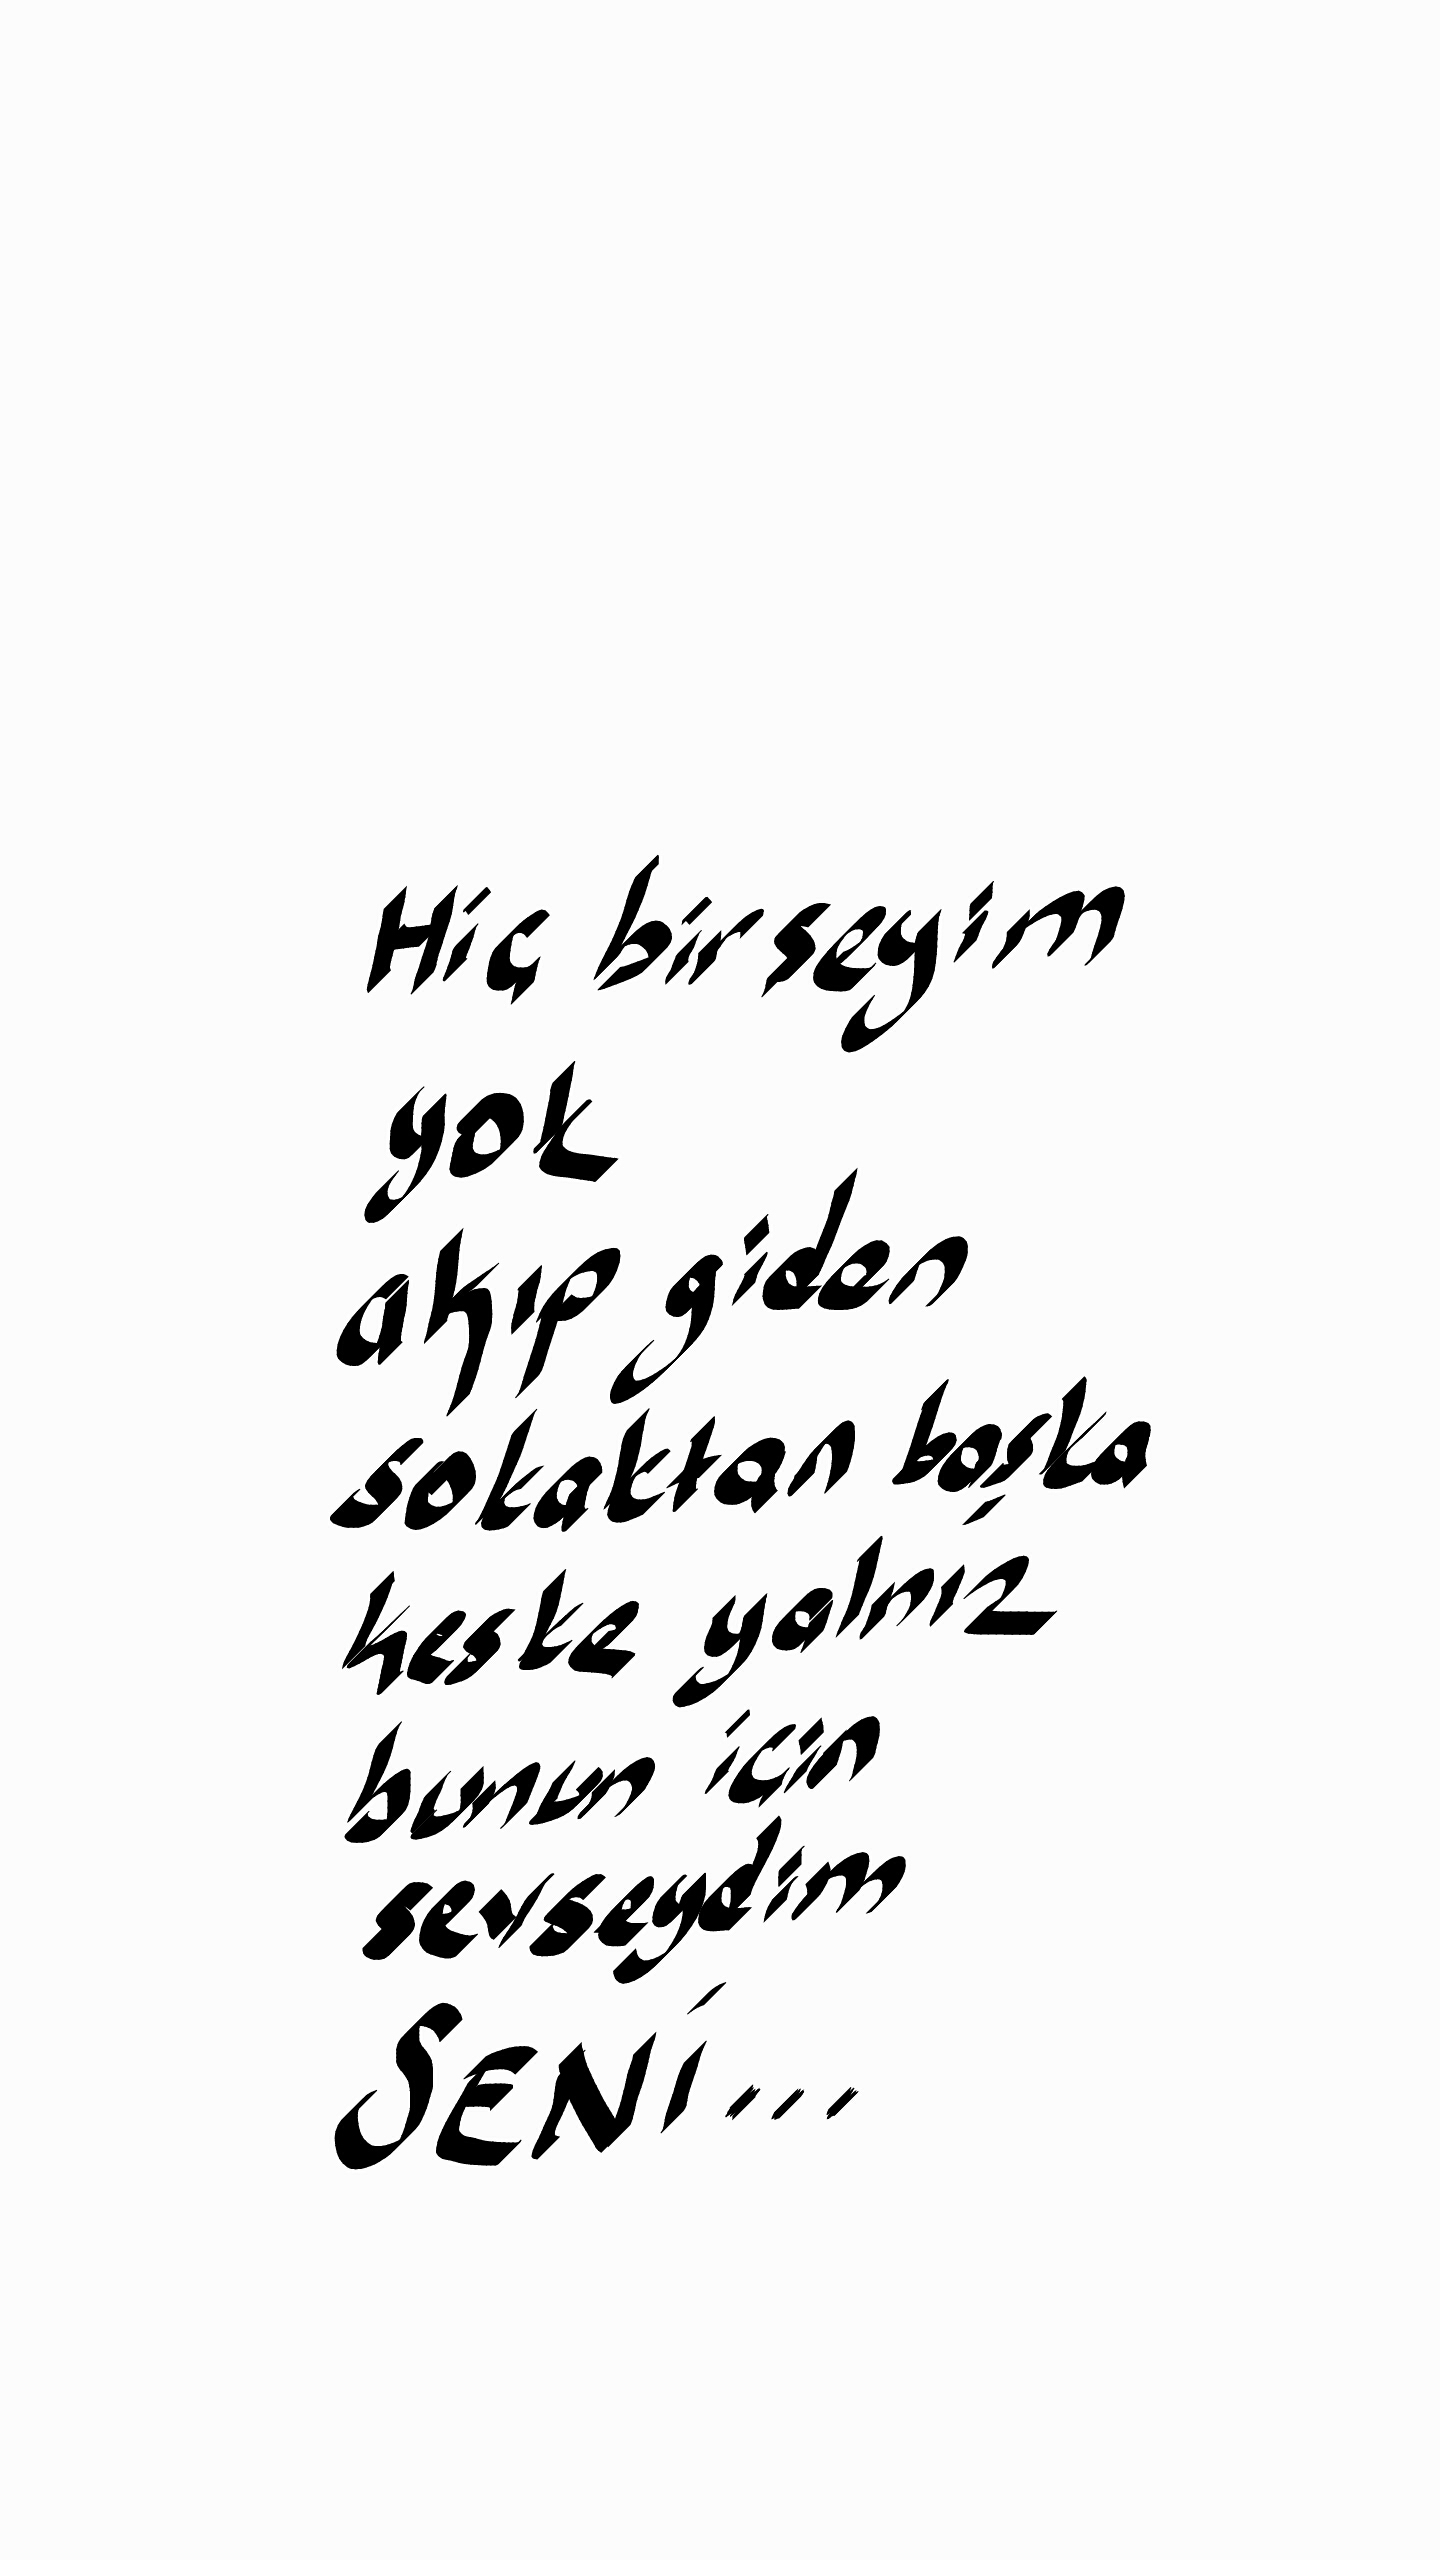 Hiç birseyim
yok
akıp giden
sokaktan başka
keske yalnız
bunun için
sevseydim
SENİ...